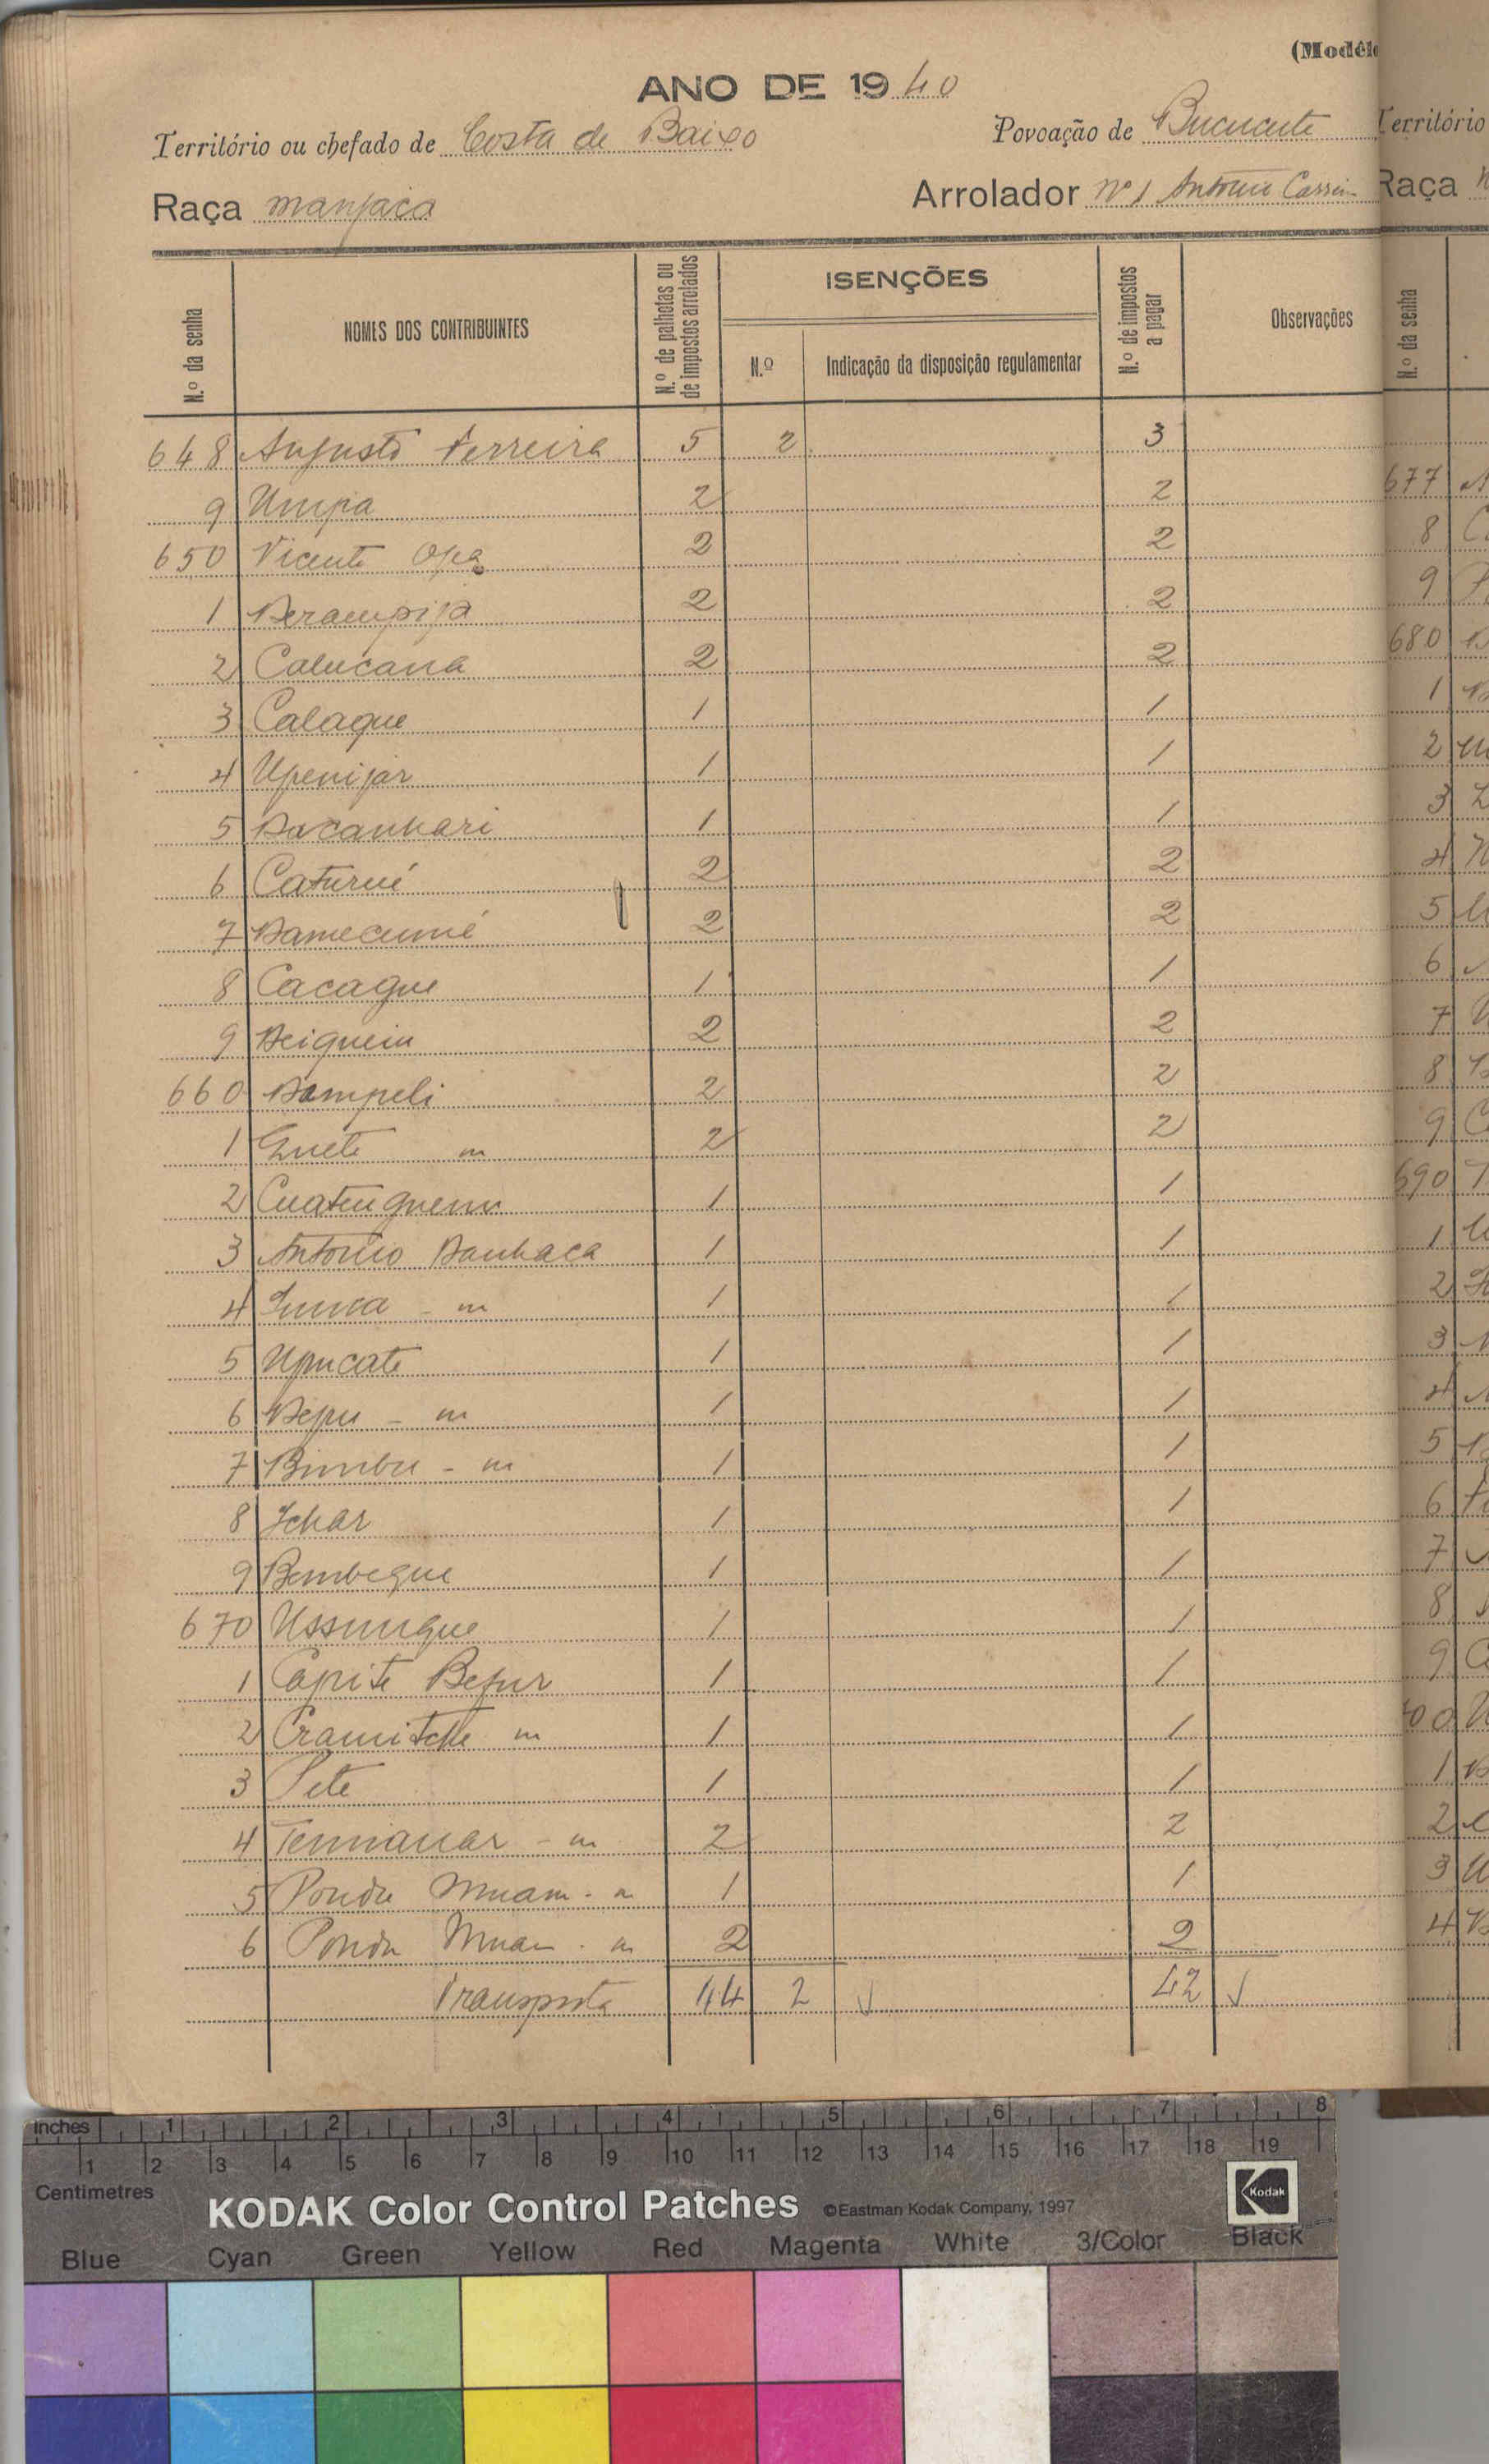 (Modêlo
ANO DE 1940
Território ou chefado de Costa de Baixo Povoação de Bucucute
Raça manjaca Arrolador nº 1 António Cassin
N.º da senha NOMES DOS CONTRIBUINTES N.º de palhotas ou de impostos arrolados ISENÇÕES N.º de impostos a pagar Observações
N.º Indicação da disposição regulamentar
648 Augusto Ferreira 5 2 3
9 Umpa 2 2
650 Vicente Opa 2 2
1 Berampija 2 2
2 Calucana 2 2
3 Calaque 1 1
4 Upenijar 1 1
5 Bacanhari 1 1
6 Caturné 2 2
7 Bamecumé 2 2
8 Cacague 1 1
9 Beiguem 2 2
660 Bampeli 2 2
1 Guete m 2 2
2 Cuatenguenu 1 1
3 António Banhaca 1 1
4 m 1 1
5 Upucate 1 1
6 Bepu - m 1 1
7 Bimbu - m 1 1
8 Ichar 1 1
9 Bembegue 1 1
670 Ussungue 1 1
1 Capite Befur 1 1
2 Cramitche m 1 1
3 Pete 1 1
4 - m 2 2
5 Pondu Muam - m 1 1
6 Pondu Muam - m 2 2
Transporta 44 2 42
Território
Raça
N.º da senha
677
8
9
680
1
2
3
4
5
6
7
8
9
690
1
2
3
4
5
6
7
8
9
700
1
2
3
4
inches 1 2 3 4 5 6 7 8
1 2 3 4 5 6 7 8 9 10 11 12 13 14 15 16 17 18 19
Centimetres
KODAK Color Control Patches ©Eastman Kodak Company, 1997 Kodak
Blue Cyan Green Yellow Red Magenta White 3/Color Black